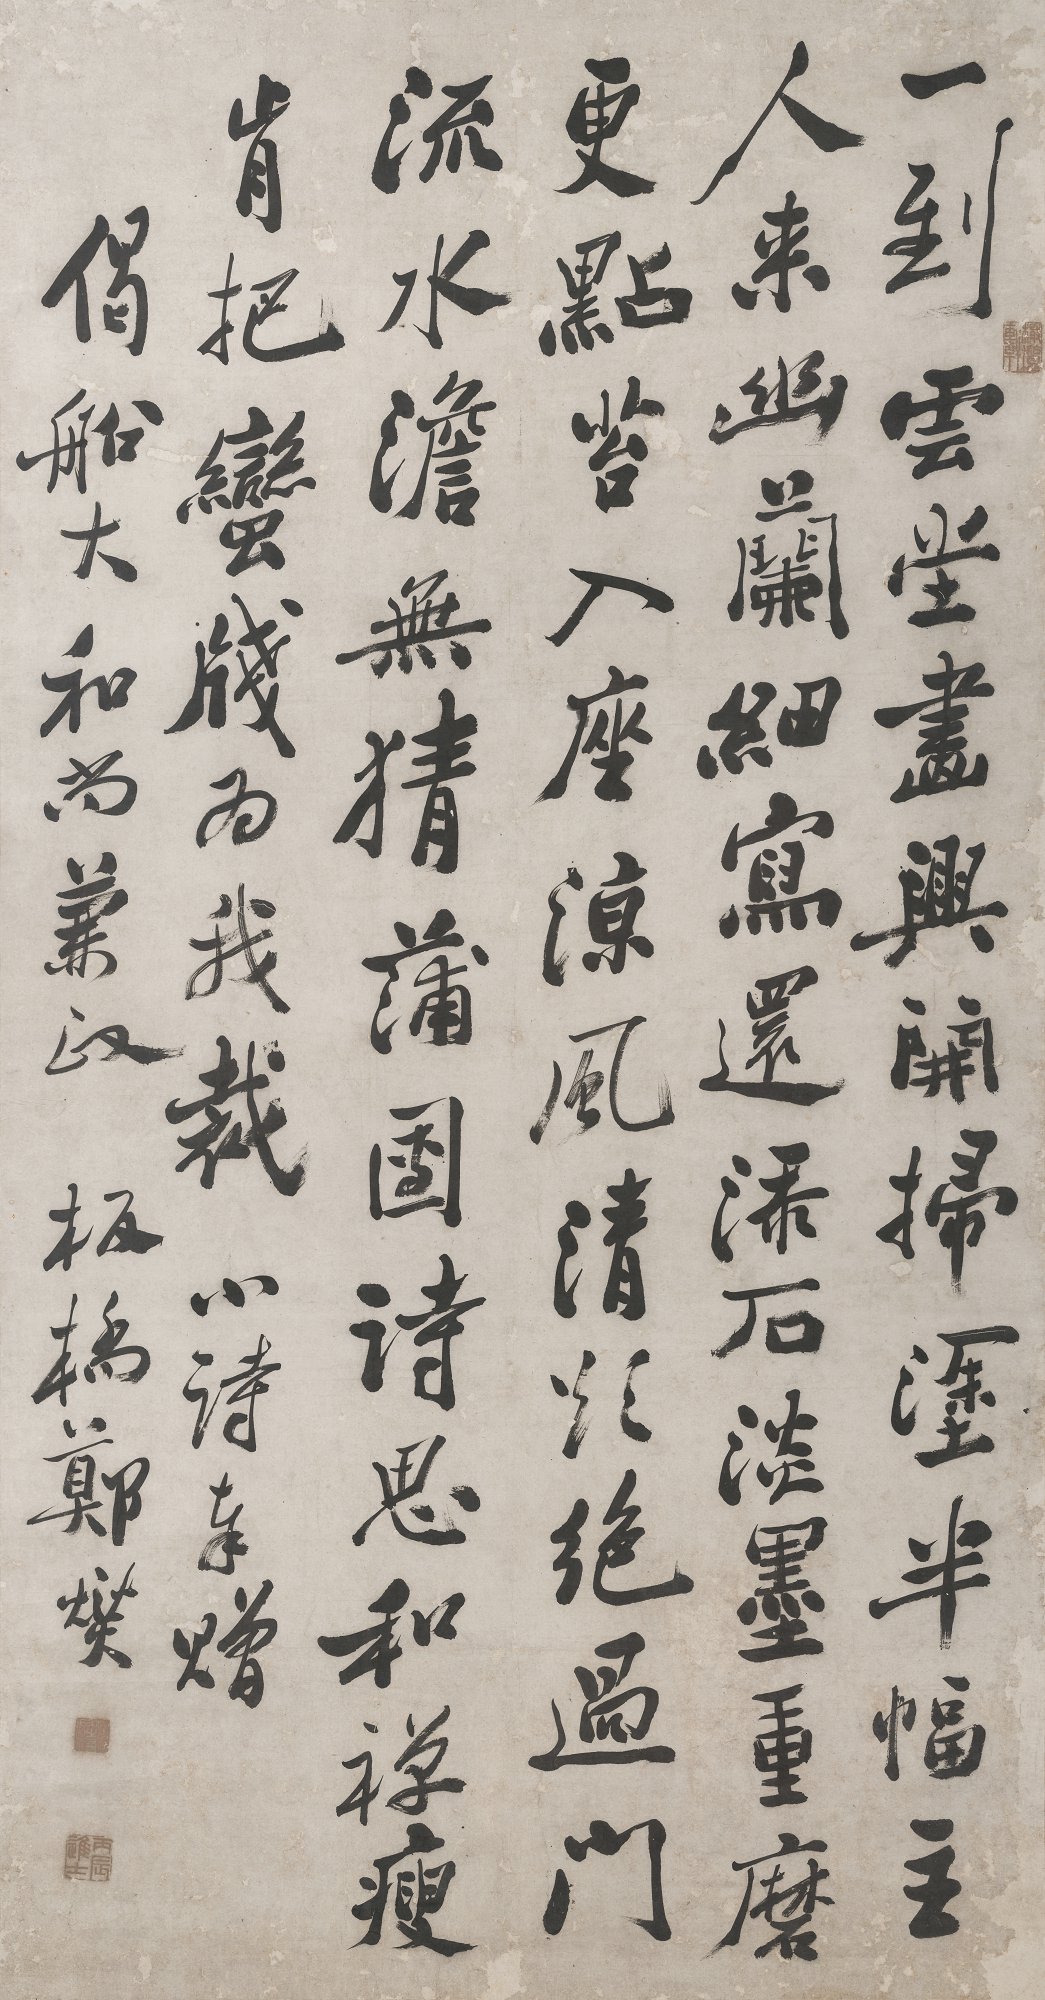 一到雲堂畫興開掃塗半幅主
人來幽蘭細寫還添石淡墨重磨
更點苔入座涼風清欲絕過門
流水澹無猜蒲團詩思和禪瘦
肯把蠻牋為我裁 小詩奉贈
偈船大和尚兼政 板橋鄭燮
丙辰進士